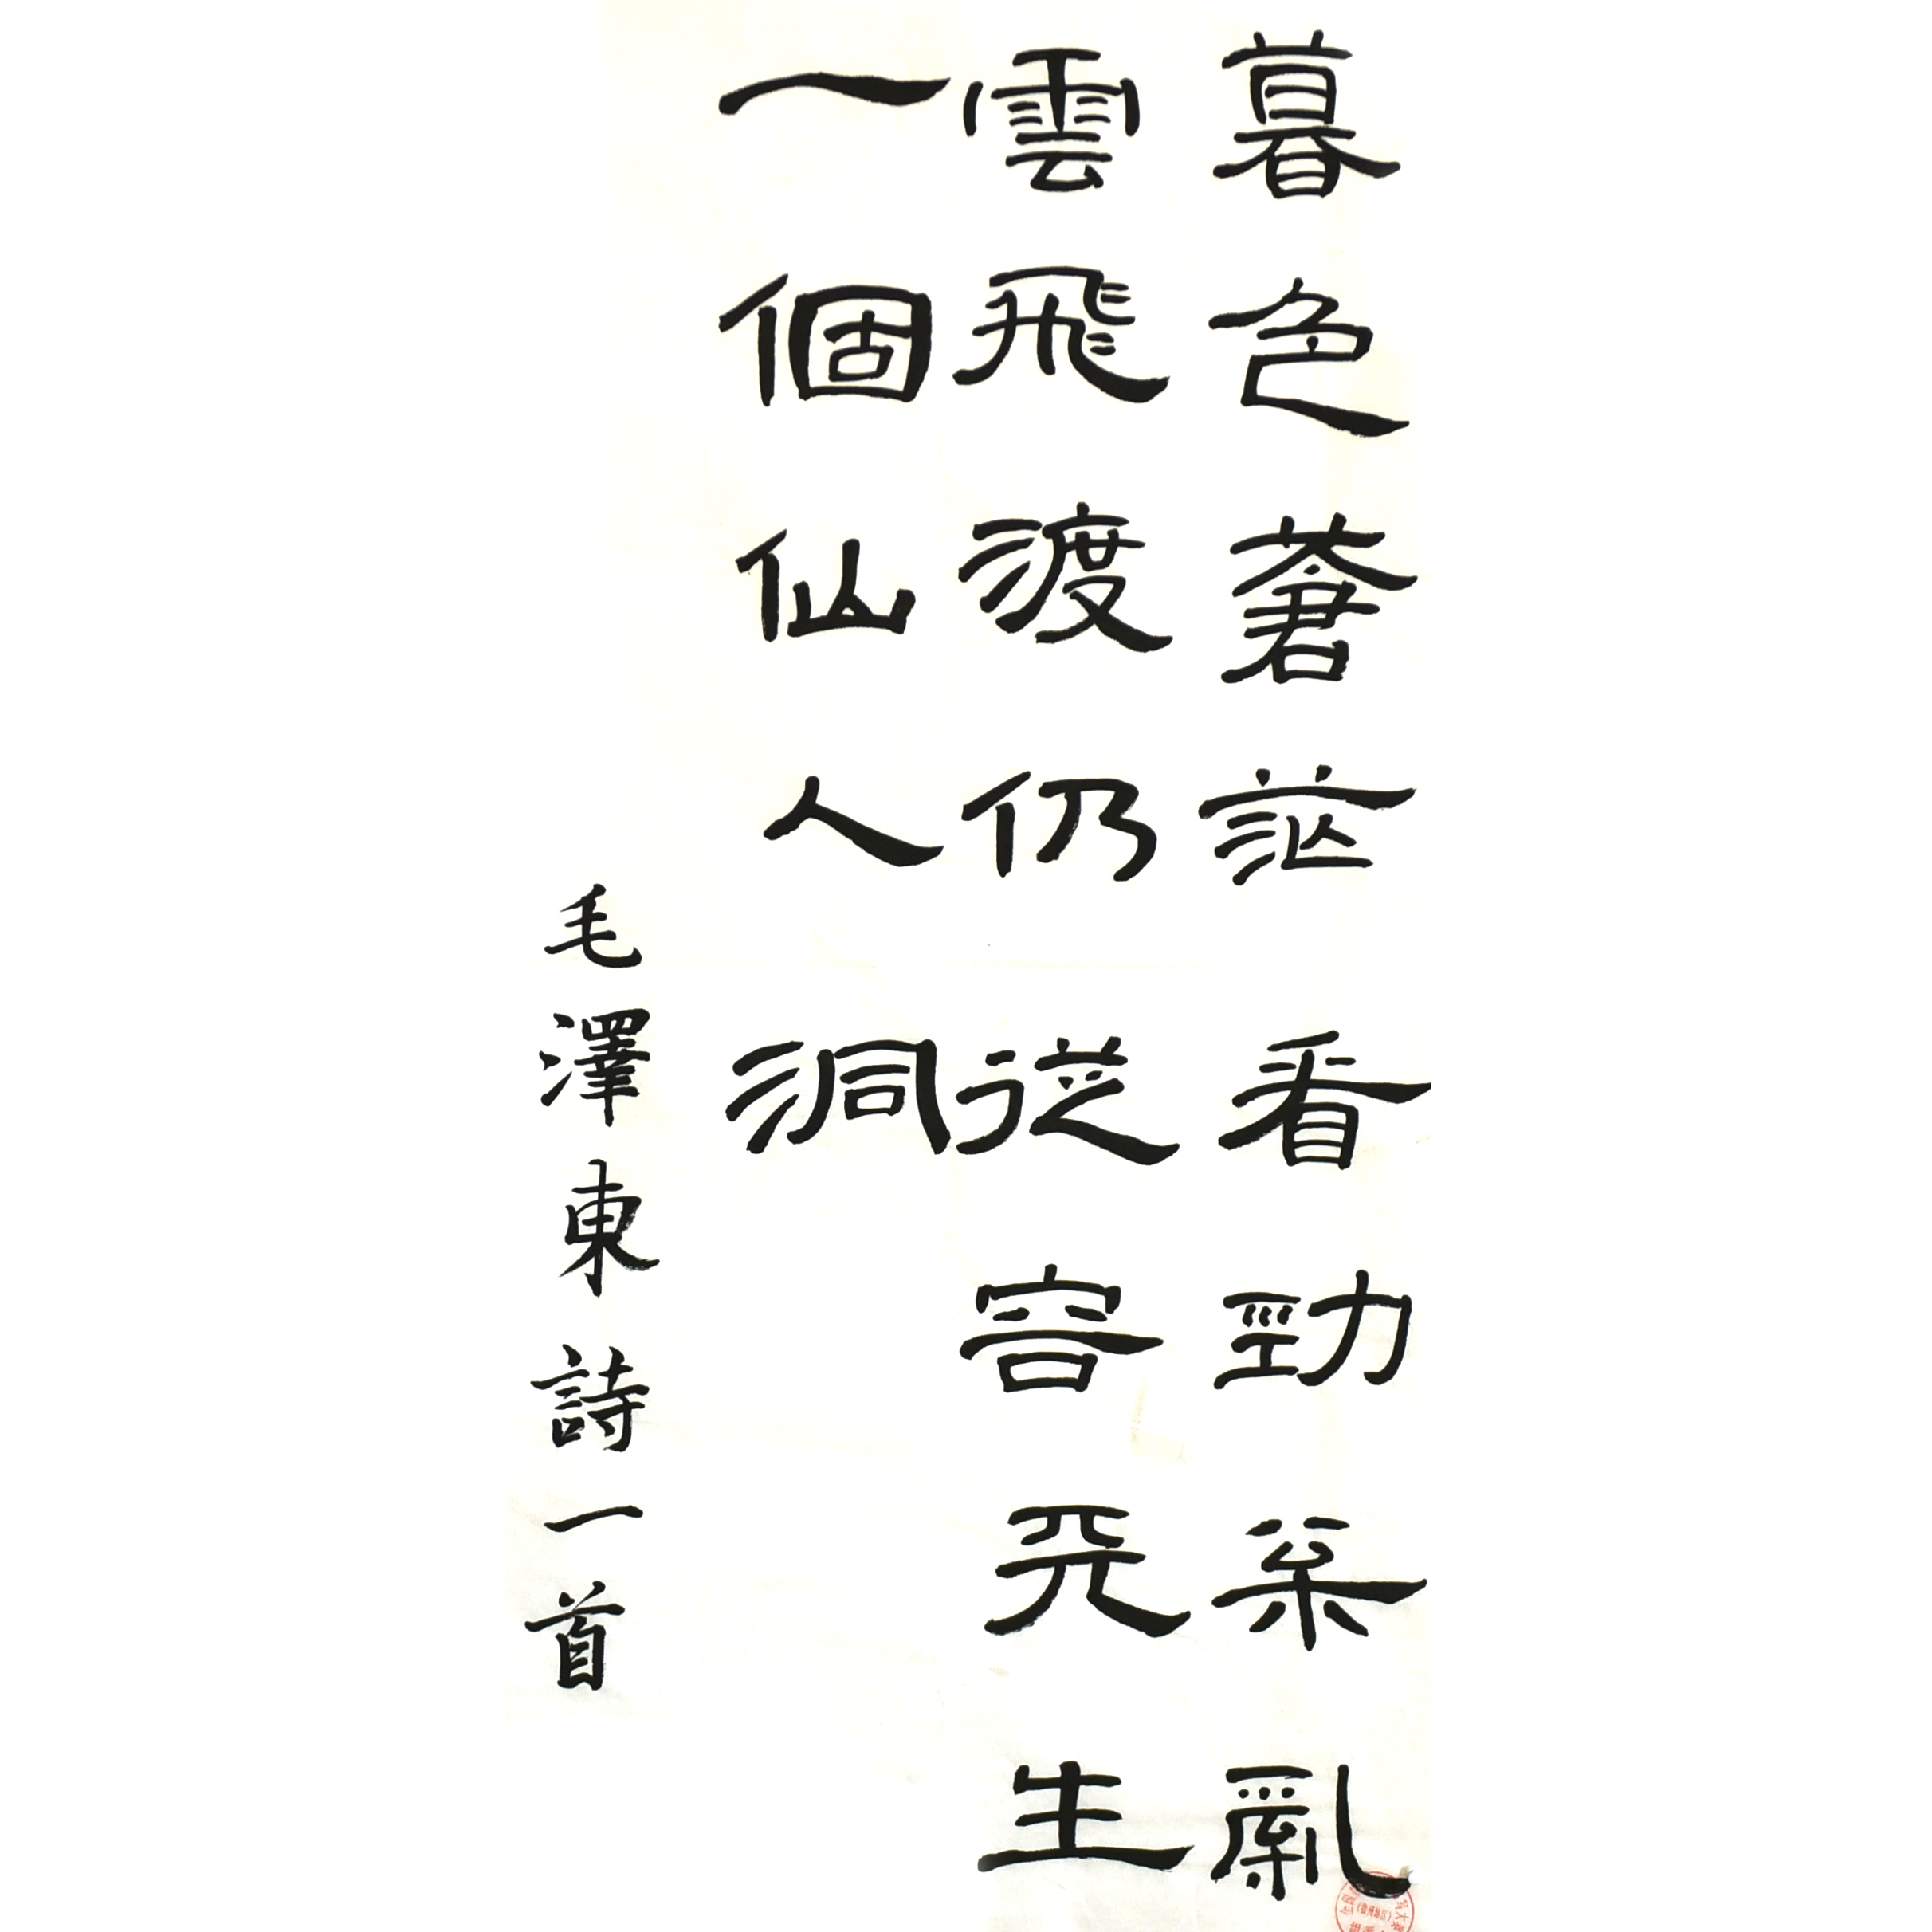 暮色蒼茫看勁枀亂
雲飛渡仍從容天生
一個仙人洞
毛澤東詩一首